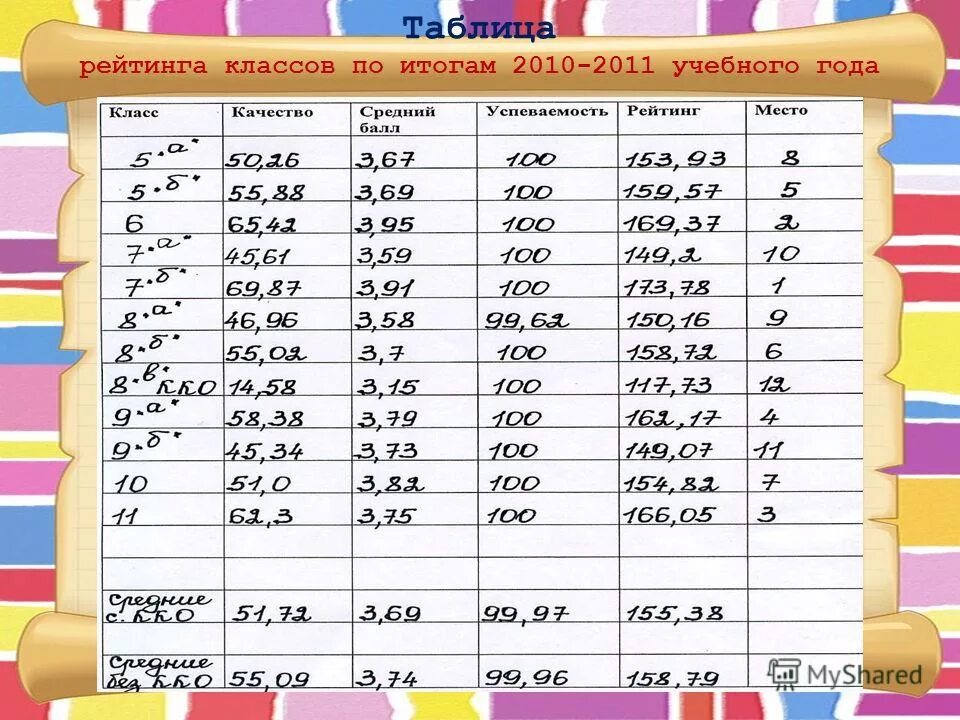 Таблица
рейтинга классов по итогам 2010-2011 учебного года
Класс Качество Средний балл Успеваемость Рейтинг Место
5 "а" 50,26 3,67 100 153,93 8
5 "б" 55,88 3,69 100 159,57 5
6 65,42 3,95 100 169,37 2
7 "а" 45,61 3,59 100 149,2 10
7 "б" 69,87 3,91 100 173,78 1
8 "а" 46,96 3,58 99,62 150,16 9
8 "б" 55,02 3,7 100 158,72 6
8 "в" ККО 14,58 3,15 100 117,73 12
9 "а" 58,38 3,79 100 162,17 4
9 "б" 45,34 3,73 100 149,07 11
10 51,0 3,82 100 154,82 7
11 62,3 3,75 100 166,05 3
средние с. ККО 51,72 3,69 99,97 155,38
средние без ККО 55,09 3,74 99,96 158,79
MyShared